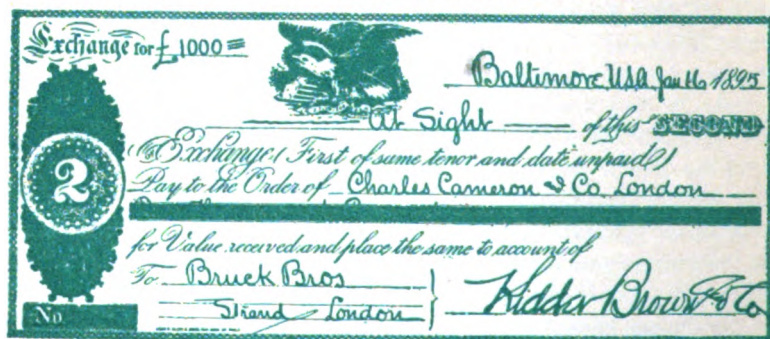 Exchange for £1000=
Baltimore USA Jan 16 1895
At Sight of this SECOND
Exchange (First of same tenor and date unpaid)
Pay to the Order of Charles Cameron & Co. London
for Value received and place the same to account of
To Bruck Bros
Strand London
Kidder Brown & Co
2
No